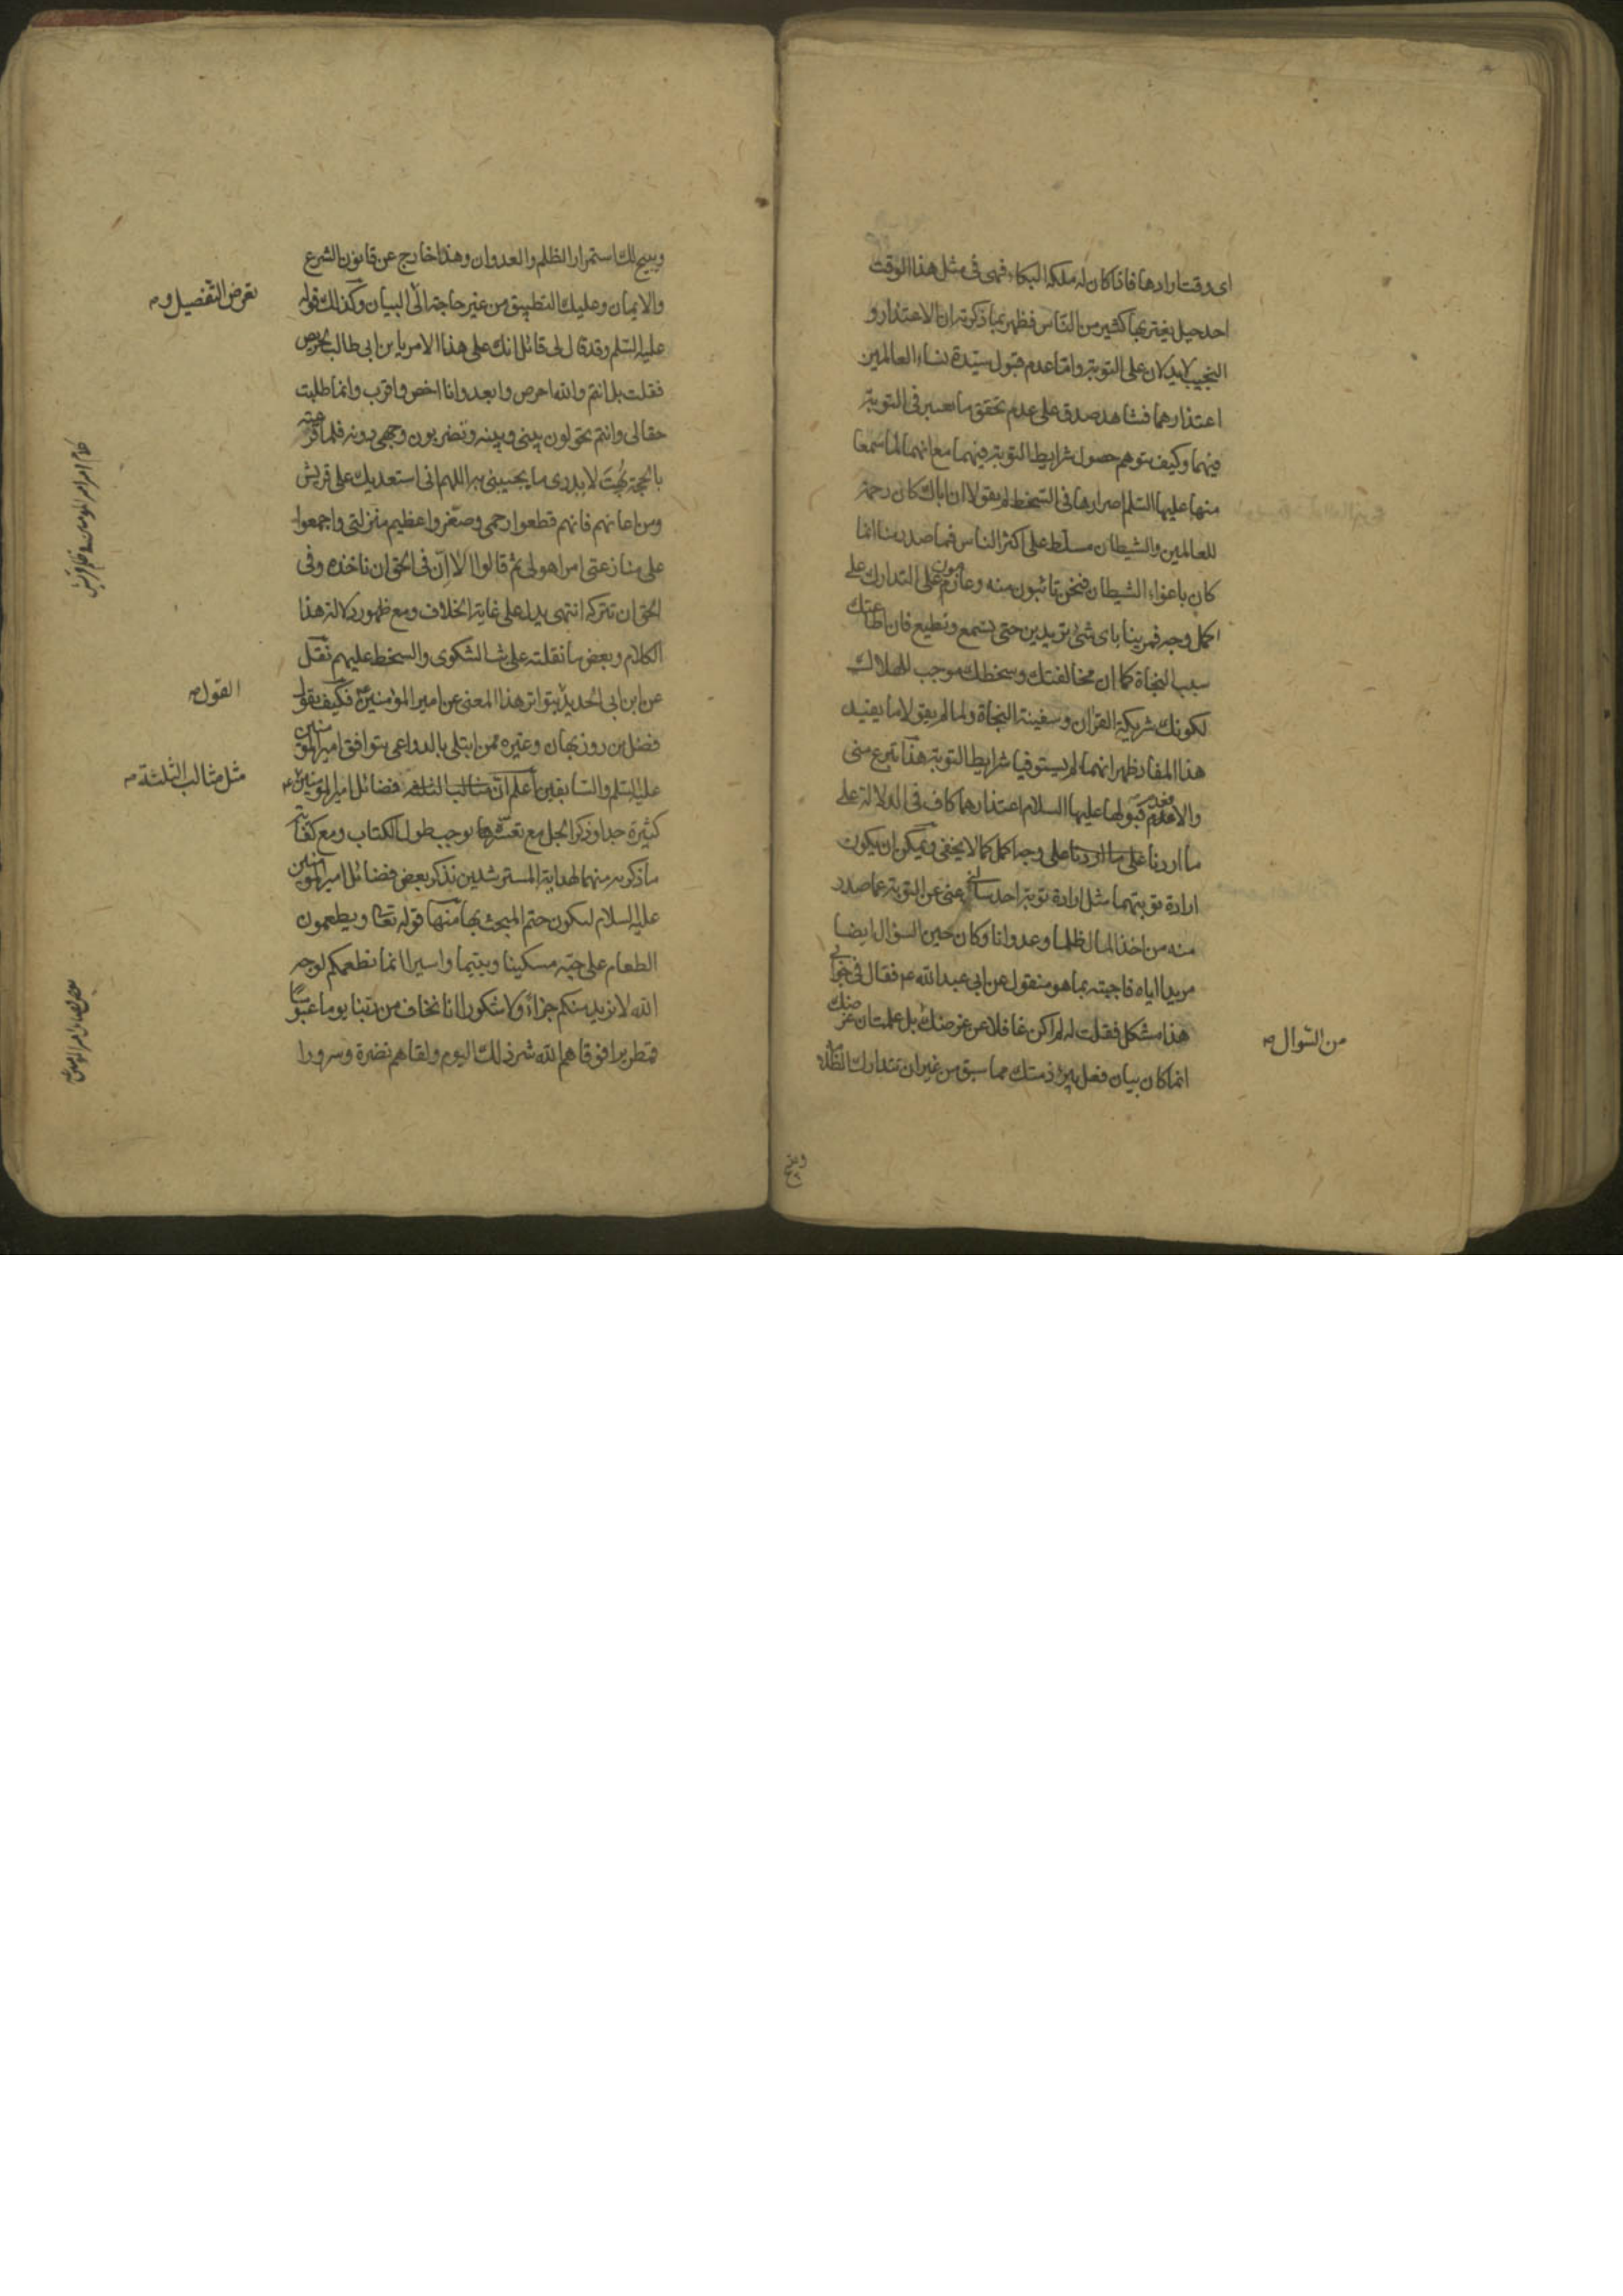 اى وقت ارادها فاذا كان له ملكة البكاء فهى فى مثل هذا الوقت
احد حيل يغتر بها كثير من الناس فظهر بما ذكرته ان الاعتذار و
النحيب لا يدلان على التوبة واما عدم قبول سيدة نساء العالمين
اعتذارهما فشاهد صدق على عدم تحقق ما يعتبر فى التوبة
فيهما وكيف يتوهم حصول شرايط التوبة فيهما مع انهما لما سمعا
منها عليها السلم اصرارها فى السخط لم يقولا ان اباك كان رحمة
للعالمين والشيطان مسلط على اكثر الناس فما صدر منا انما
كان باغواء الشيطان فنحن تائبون منه وعازمون على التدارك على
اكمل وجه فمرينا باى شىء تريدين حتى نسمع ونطيع فان اطاعتك
سبب النجاة كما ان مخالفتك وسخطك موجب للهلاك
لكونك شريكة القرآن وسفينة النجاة ولما لم يقولا ما يفيد
هذا المفاد ظهر انهما لم يستوفيا شرايط التوبة هذا تبرع منى
والا فعدم قبولها عليها السلام اعتذارهما كاف فى الدلالة على
ما اردنا على ما اردنا على وجه اكمل كما لا يخفى ويمكن ان يكون
ارادة توبتهما مثل ارادة توبة احد سألنى عن التوبة عما صدر
منه من اخذ المال ظلما وعدوانا وكان حين السؤال ايضا
مريدا اياه فاجبته بما هو منقول عن ابى عبد الله ع فقال فى جوابى
هذا مشكل فقلت له لم اكن غافلا عن غرضك بل علمت ان غرضك
من السوال صح
انما كان بيان فعل يبرئ ذمتك مما سبق من غير ان تتدارك الظلامة
ويبيح
ويبيح لك استمرار الظلم والعدوان وهذا خارج عن قانون الشرع
والايمان وعليك التطبيق من غير حاجة الى البيان وكذلك قوله
تعرض التفصيل و صح
عليه السلم وقد قال لى قائل انك على هذا الامر يابن ابى طالب لحريص
فقلت بل انتم والله احرص وابعد وانا اخص واقرب وانما طلبت
حقا لى وانتم تحولون بينى وبينه وتضربون وجهى دونه فلما قرعته
بالحجة بهت لا يدرى ما يجيبنى به اللهم انى استعديك على قريش
ومن اعانهم فانهم قطعوا رحمى وصغروا عظيم منزلتى واجمعوا
على منازعتى امرا هو لى ثم قالوا الا ان فى الحق ان ناخذه وفى
الحق ان تتركه انتهى يدل على غاية الخلاف ومع ظهور دلالة هذا
الكلام وبعض ما نقلته على الشكوى والسخط عليهم نقل
عن ابن ابى الحديد تواتر هذا المعنى عن امير المؤمنين ع فكيف يقول
القول صح
فضل بن روزبهان وغيره ممن ابتلى بالدواعى بتوافق امير المؤمنين
عليه السلم والسابقين اعلم ان مثالب الثلثة فضائل امير المؤمنين ع
مثل مثالب الثلثة صح
كثيرة جدا وذكر الجل مع تعسرها يوجب طول الكتاب ومع كفاية
ما ذكر منهما لهداية المسترشدين نذكر بعض فضائل امير المؤمنين
عليه السلام ليكون ختم المبحث بها منها قوله تعالى ويطعمون
الطعام على حبه مسكينا ويتيما واسيرا انما نطعمكم لوجه
الله لا نريد منكم جزاء ولا شكورا انا نخاف من ربنا يوما عبوسا
قمطريرا فوقاهم الله شر ذلك اليوم ولقاهم نضرة وسرورا